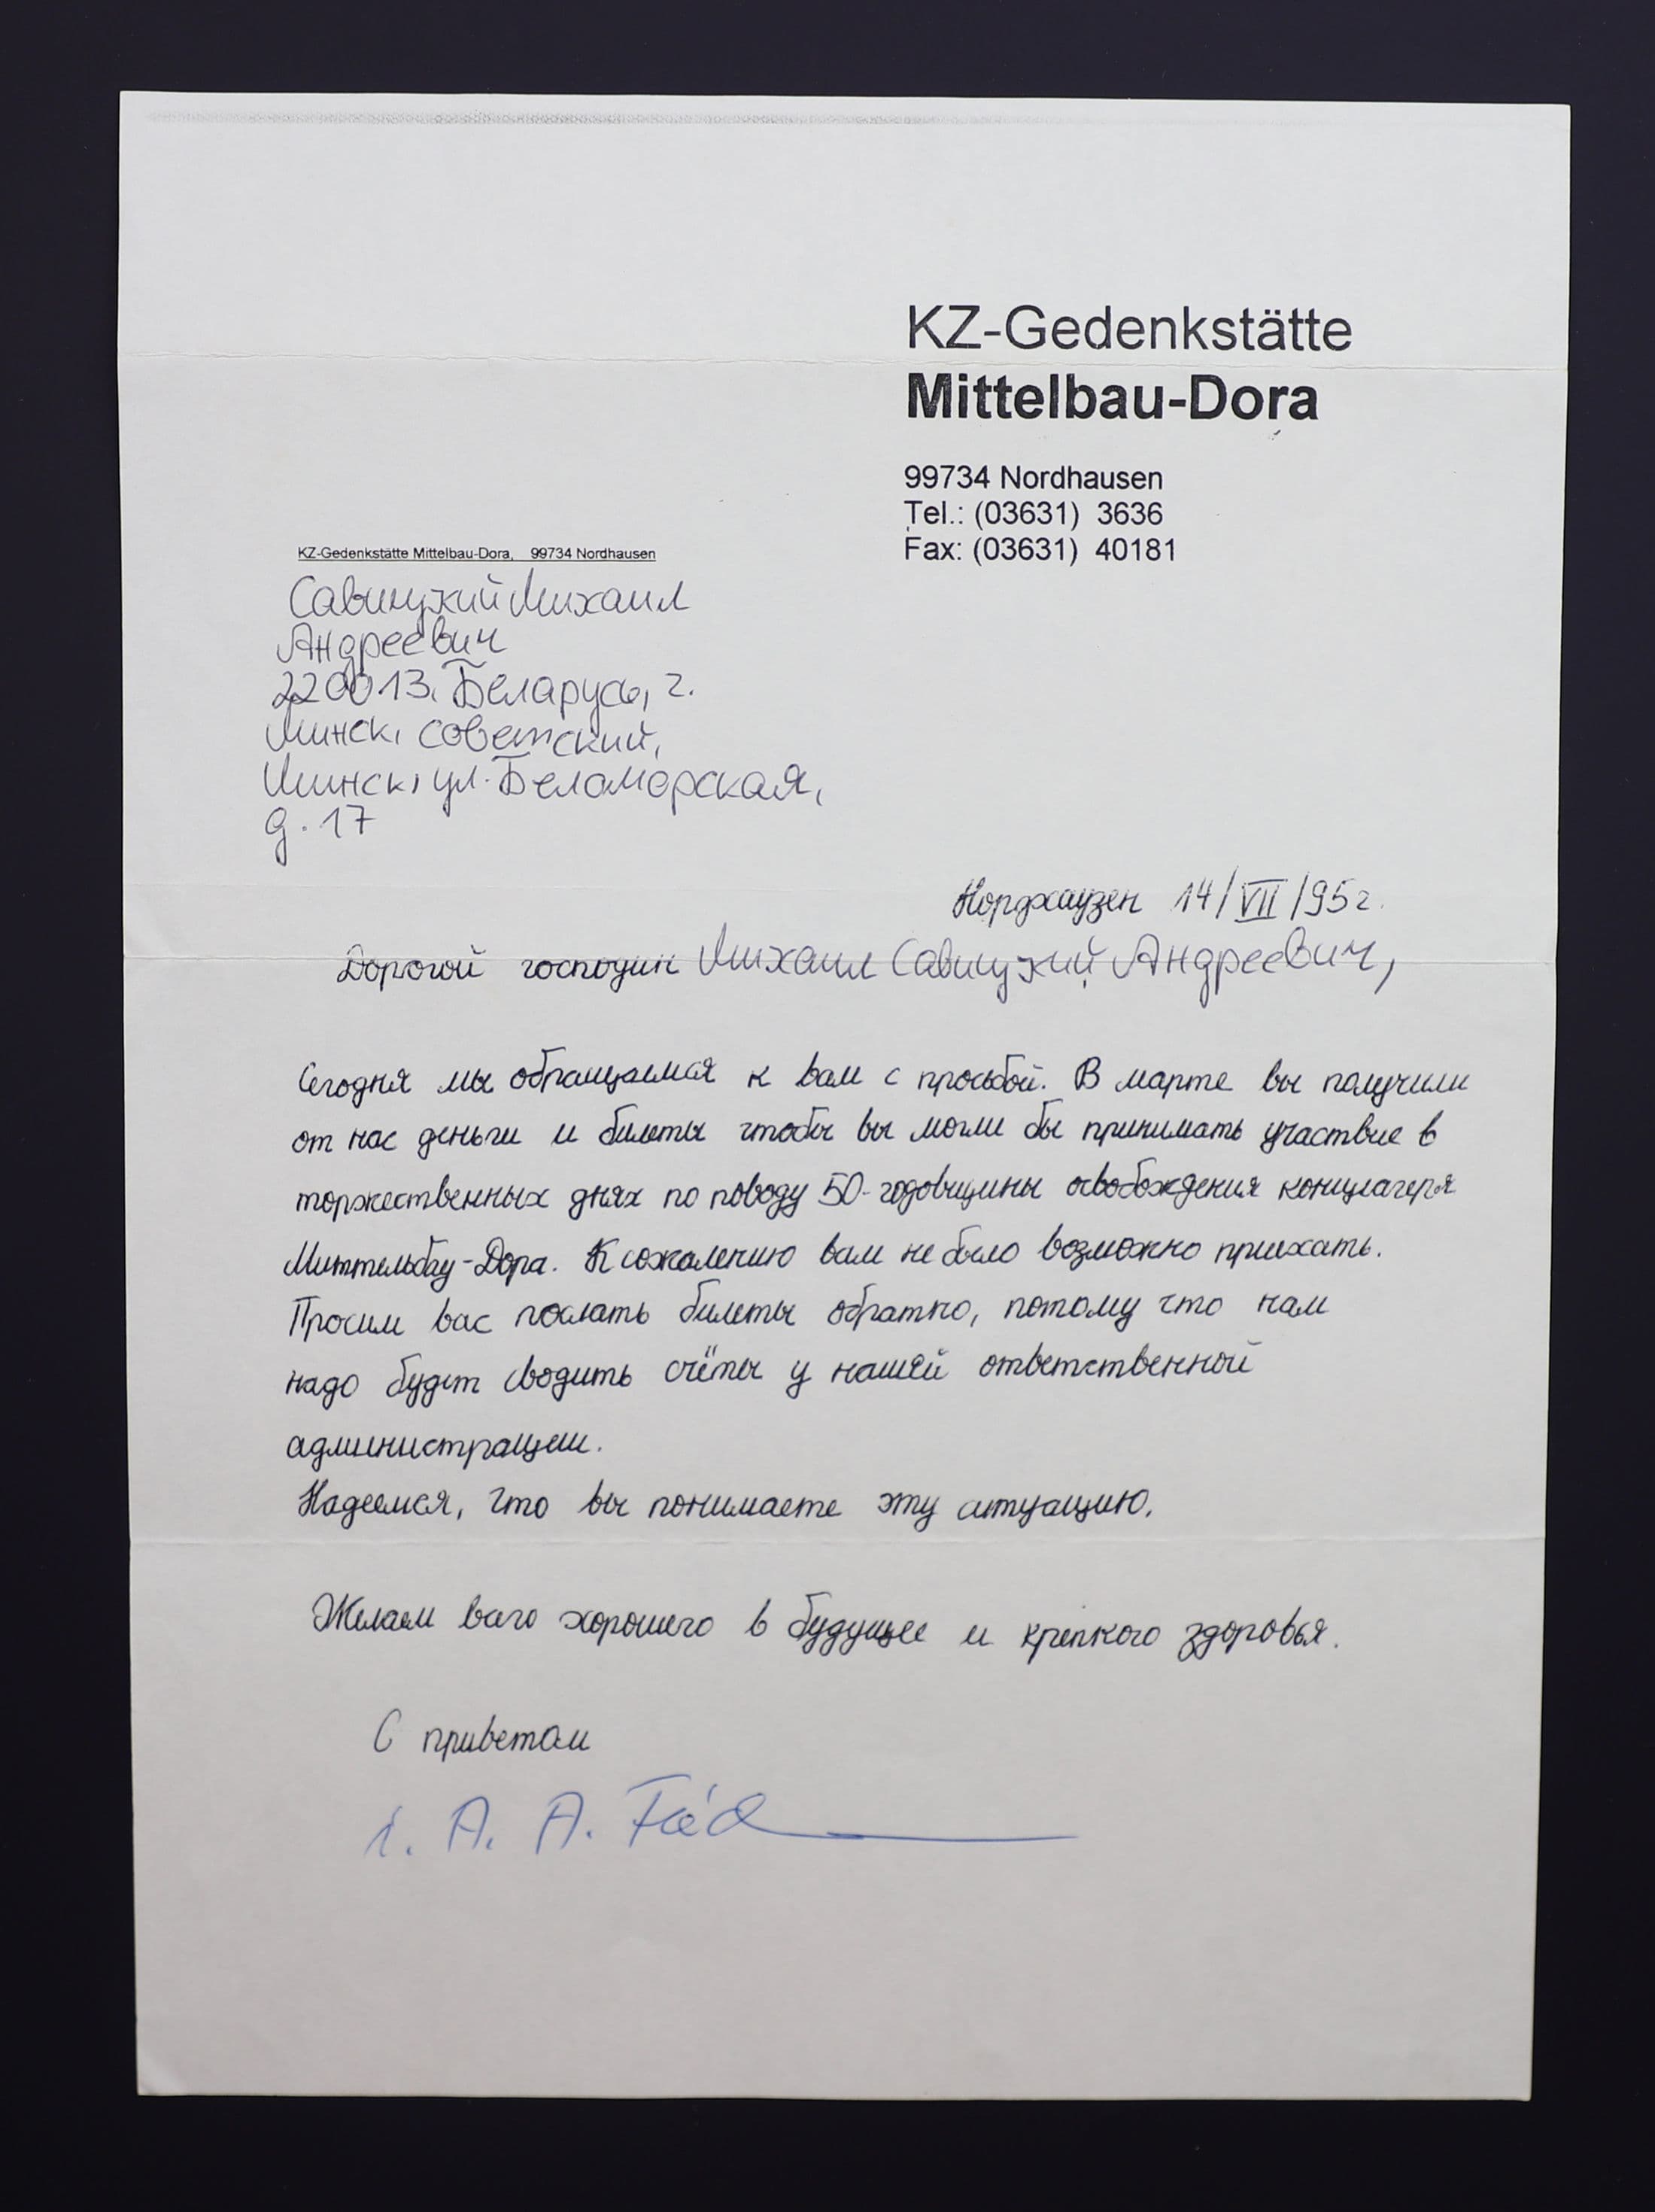 KZ-Gedenkstätte
Mittelbau-Dora
99734 Nordhausen
Tel.: (03631) 3636
Fax: (03631) 40181
KZ-Gedenkstätte Mittelbau-Dora, 99734 Nordhausen
Савицкий Михаил
Андреевич
220013, Беларусь, г.
Минск, Советский,
Минск, ул. Беломорская,
д. 17
Нордхаузен 14/VII/95 г.
Дорогой господин Михаил Савицкий Андреевич,
Сегодня мы обращаемся к вам с просьбой. В марте вы получили
от нас деньги и билеты чтобы вы могли бы принимать участвие в
торжественных днях по поводу 50-годовщины освобождения концлагеря
Миттельбау-Дора. К сожалению вам не было возможно приехать.
Просим вас послать билеты обратно, потому что нам
надо будет сводить счёты у нашей ответственной
администрации.
Надеемся, что вы понимаете эту ситуацию.
Желаем васо хорошего в будущее и крепкого здоровья.
С приветом
i. A. A.